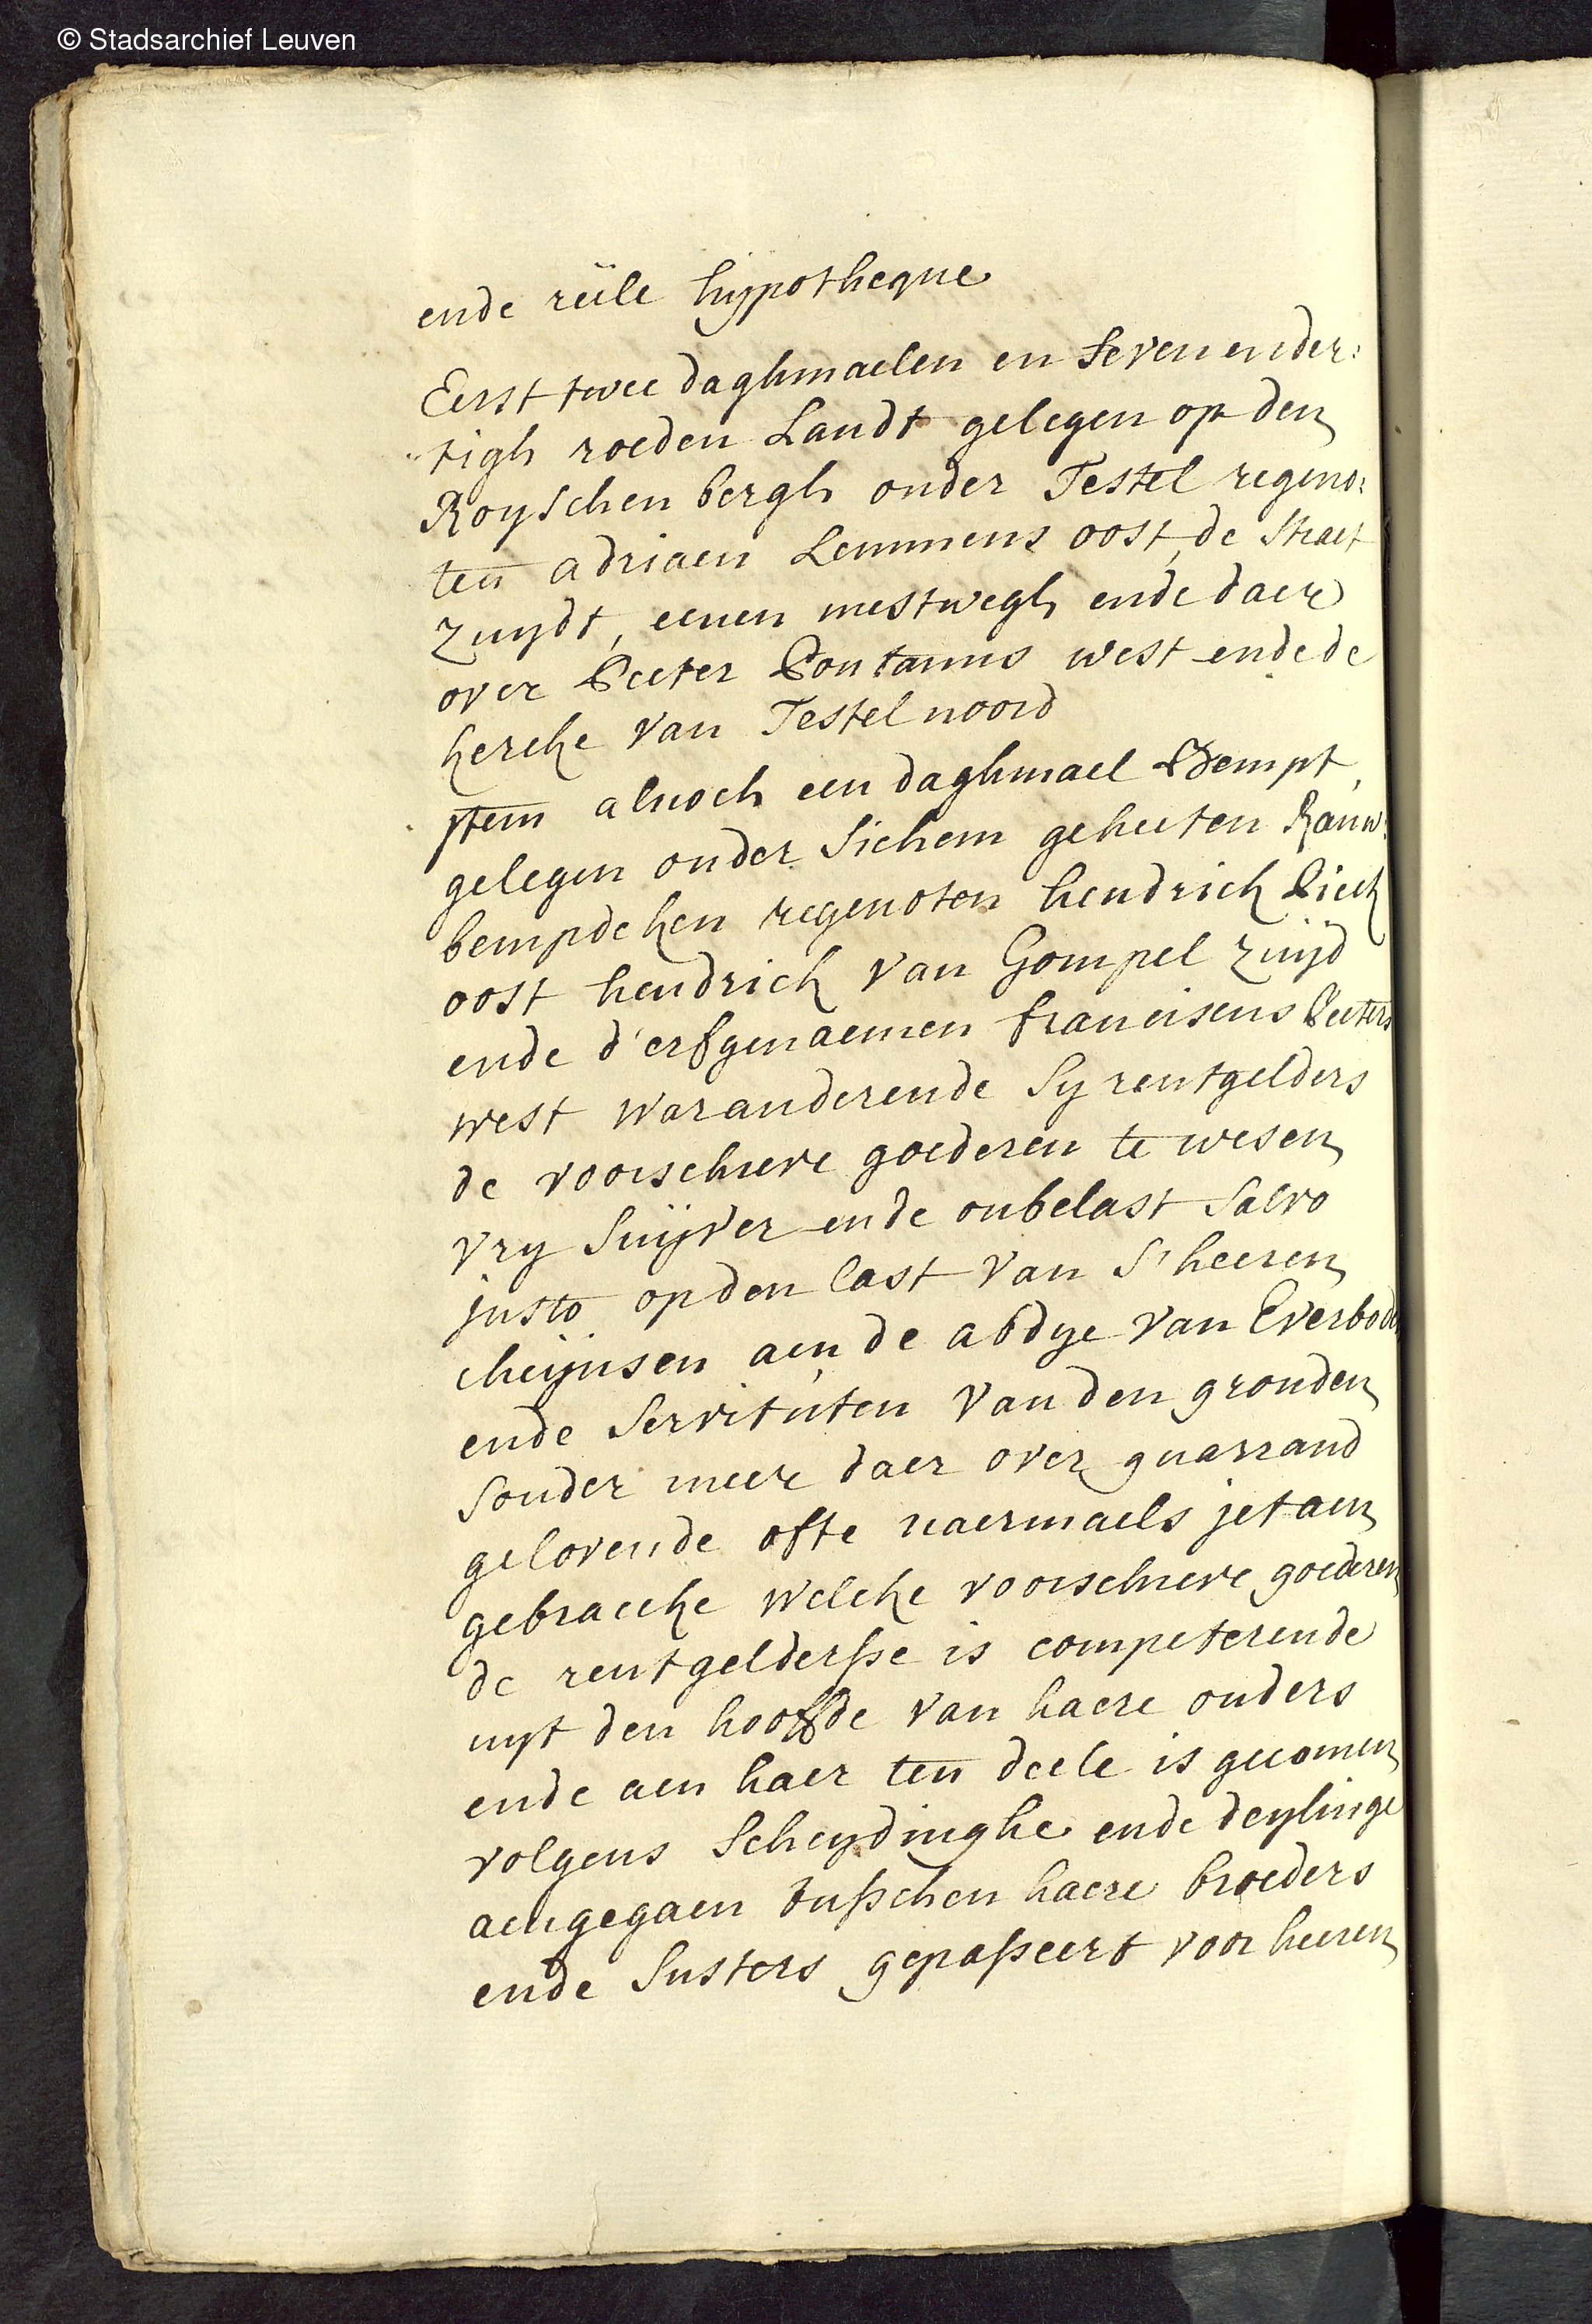 © Stadsarchief Leuven
ende reële hypotheque
Eerst twee daghmaelen en seven ender:
tigh roeden Landt gelegen op den
Royschen bergh onder Testel regeno:
ten adriaen Lemmens oost, de straet
zuydt, eenen mestwegh ende daer
over Peeter Pontanus west ende de
kercke van Testel noord
Item alnoch een daghmael Bempt,
gelegen onder Sichem geheeten Rauw:
bempdeken regenoten hendrick Pieck
oost hendrick van Gompel zuyd
ende d'erfgenaemen franciscus Peeters
west waranderende sy rentgelders
de voorschreve goederen te wesen
vry suyver ende onbelast salvo
justo op den last van s'heeren
cheynsen aen de abdye van Everbode
ende servituten van den gronden
sonder meer daer over guarrand
gelovende ofte naermaels iet aen
gebraecke welcke voorschreve goederen
de rentgeldersse is competerende
uyt den hoofde van haere ouders
ende aen haer ten deele is gecomen
volgens scheydinghe ende deylinge
aengegaen tusschen haere broeders
ende susters gepasseert voor heeren